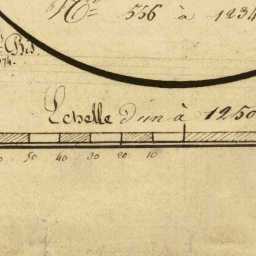 Nº 556 à 1234
Echelle d'un à 1250
50 40 30 20 10